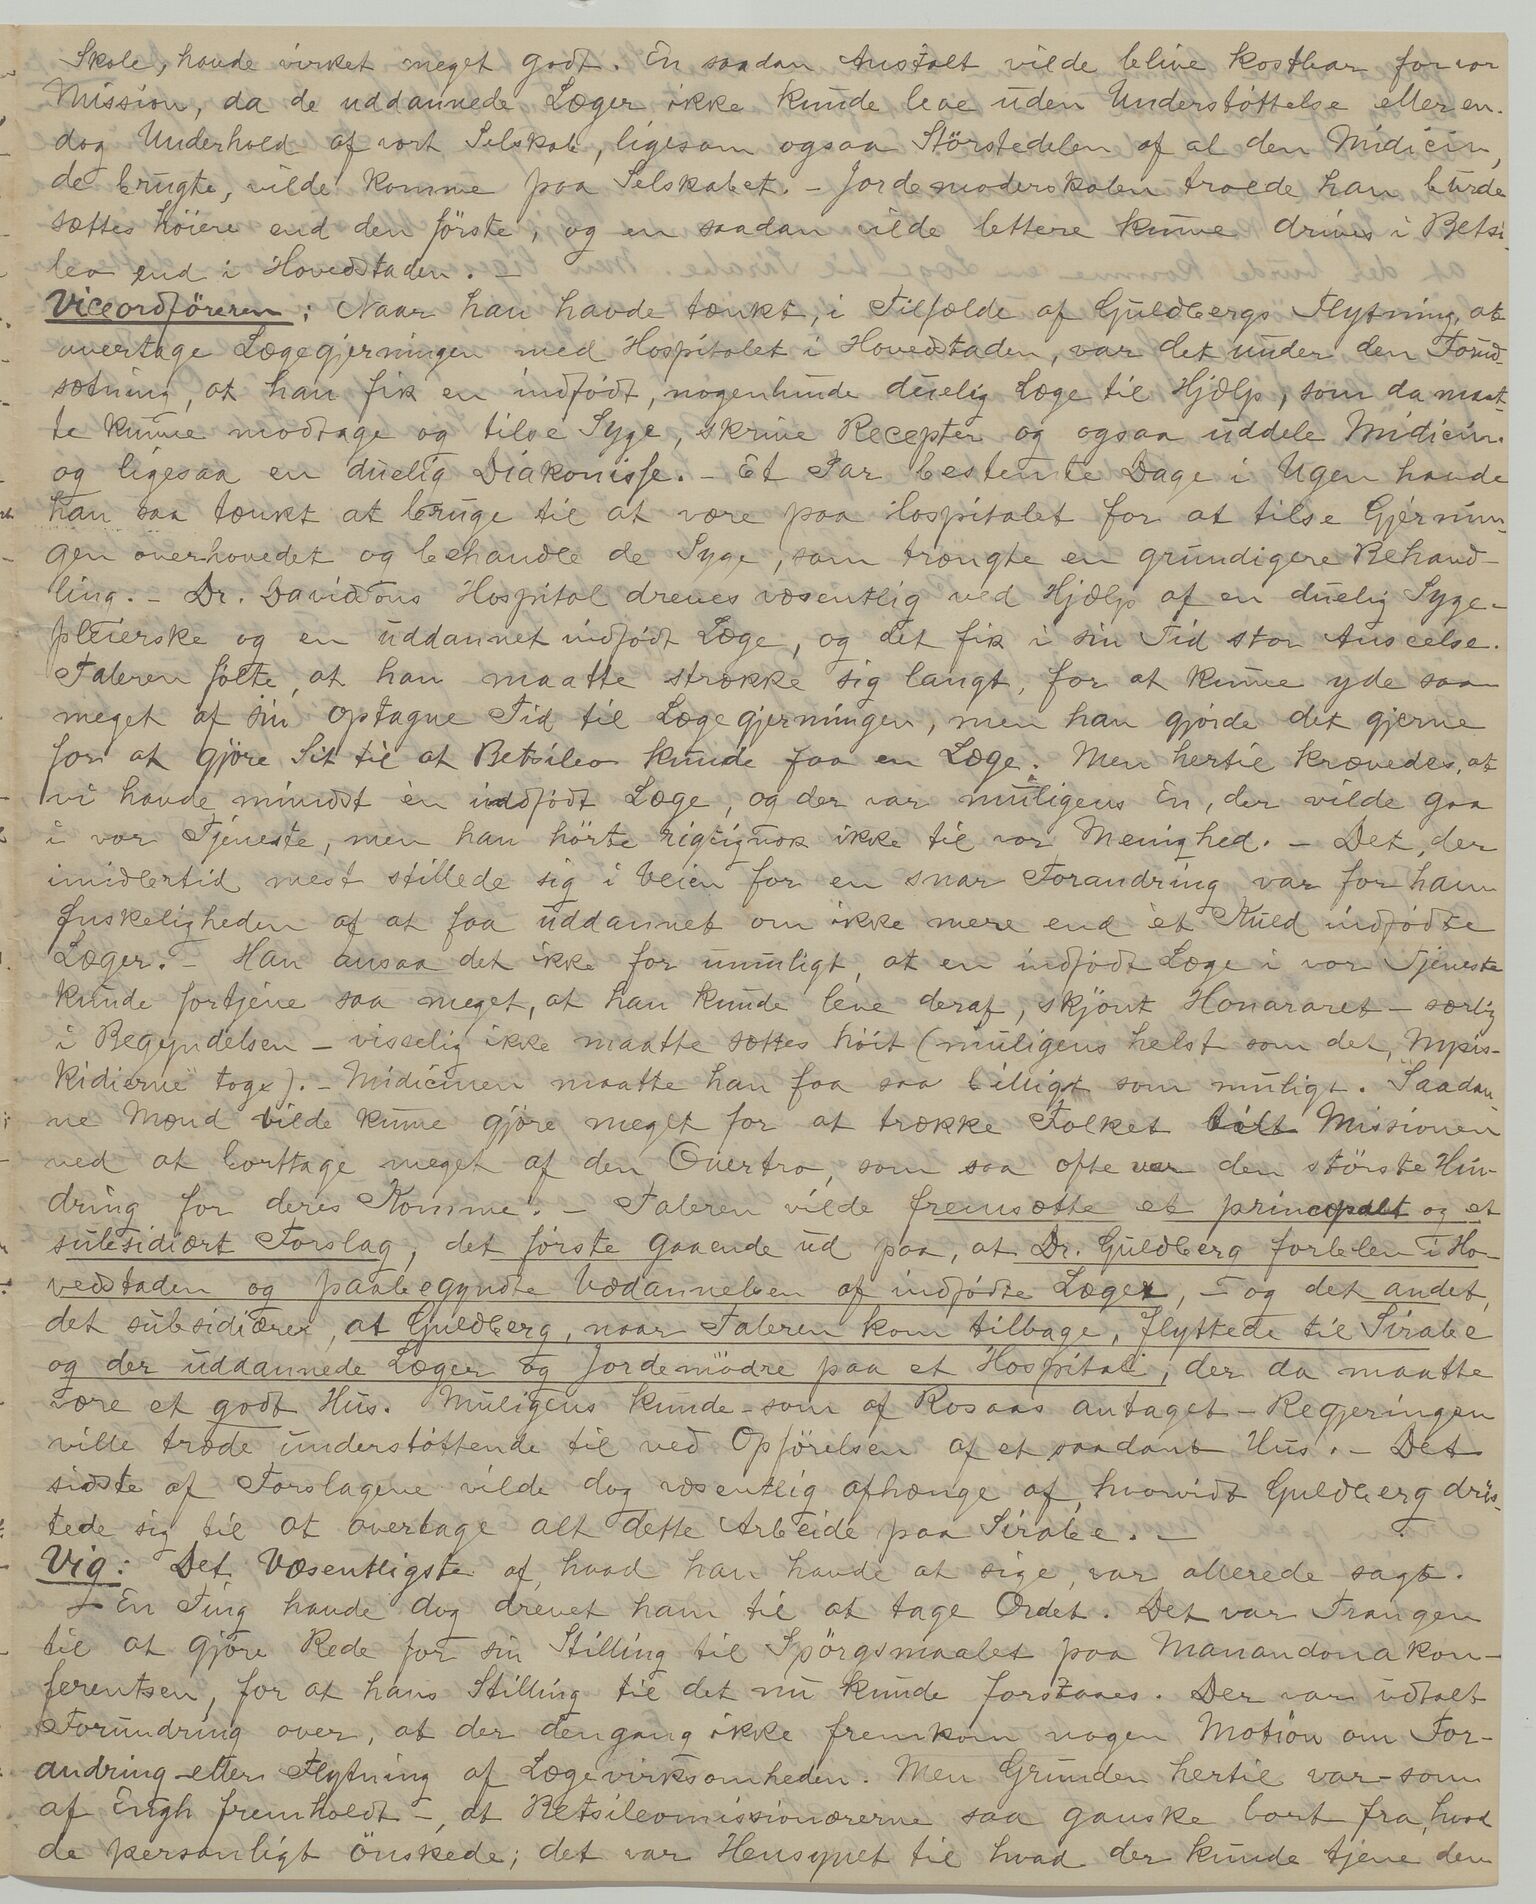 Skole, havde virket meget godt. En saadan Anstalt vilde blive kostbar for vor
Mission, da de uddannede Læger ikke kunde leve uden Understøttelse eller en-
dog Underhold af vort Selskab, ligesom ogsaa Störstedelen af al den Midicin,
de brugte, vilde komme paa Selskabet. – Jordemoderskolen troede han burde
sættes höiere end den förste, og en saadan vilde lettere kunne drives i Betsi-
leo end i Hovedstaden. –
Viceordföreren: Naar han havde tænkt, i Tilfælde af Guldbergs Flytning, at
overtage Lægegjerningen med Hospitalet i Hovedstaden, var det under den Forud
sætning, at han fik en indfödt, nogenlunde duelig Læge til Hjælp, som da maat-
te kunne modtage og tilse Syge, skrive Recepter og ogsaa uddele Midicin.
og ligesaa en duelig Diakonisse. – Et Par bestemte Dage i Ugen havde
han saa tænkt at bruge til at være paa Hospitalet for at tilse Gjernin-
gen overhovedet og behandle de Syge, som trængte en grundigere Behand-
ling. – Dr. Davidsons Hospital dreves væsentlig ved Hjælp af en duelig Syge-
pleierske og en uddannet indfödt Læge, og det fik i sin Tid stor Anseelse.
Taleren fölte, at han maatte strække sig langt, for at kunne yde saa
meget af sin optagne Tid til Lægegjerningen, men han gjorde det gjerne
for at gjöre Sit til at Betsileo kunde faa en Læge. Men hertil krævedes, at
vi havde mindst èn indfödt Læge, og der var muligens Èn, der vilde gaa
i vor Tjeneste, men han hörte rigtignok ikke til vor Menighed. – Det, der
imidlertid mest stillede sig i Veien for en snar Forandring var for ham
Ønskeligheden af at faa uddannet om ikke mere end èt Kuld indfödte
Læger. – Han ansaa det ikke for umuligt, at en indfödt Læge i vor Tjeneste
kunde fortjene saa meget, at han kunde leve deraf, skjönt Honoraret – særlig
i Begyndelsen – visselig ikke maatte sættes höit (muligens helst som det, Mpis-
kidierne toge). – Midicinen maatte han faa saa billigt som muligt. Saadan-
ne Mænd vilde kunne gjöre meget for at trække Folket til Missionen
ved at borttage meget af den Overtro, som saa ofte var den störste Hin-
dring for deres Komme. – Taleren vilde fremsætte et principalt og et
subsidiært Forslag, det förste gaaende ud paa, at Dr. Guldberg forblev i Ho-
vedstaden og paabegyndte Uddannelsen af indfödte Læger, – og det andet,
det subsidiære, at Guldberg, naar Taleren kom tilbage, flyttede til Sirabe
og der uddannede Læger og Jordemödre paa et Hospital, der da maatte
være et godt Hus. Muligens kunde – som af Rosaas antaget – Regjeringen
ville træde understöttende til ved Opförelsen af et saadant Hus. – Det
sidste af Forslagene vilde dog væsentlig afhænge af, hvorvidt Guldberg dris-
tede sig til at overtage alt dette Arbeide paa Sirabe. –
Vig: Det Væsentligste af, hvad han havde at sige, var allerede sagt.
En Ting havde dog drevet ham til at tage Ordet. Det var Trangen
til at gjöre Rede for sin Stilling til Spörgsmaalet paa Manandonakon-
ferentsen, for at hans Stilling til det nu kunde forstaaes. Der var udtalt
Forundring over, at der dengang ikke fremkom nogen Motion om For-
andring eller Flytning af Lægevirksomheden. Men Grunden hertil var – som
af Engh fremholdt –, at Betsileomissionærerne saa ganske bort fra, hvad
de personligt önskede; det var Hensynet til hvad der kunde tjene den